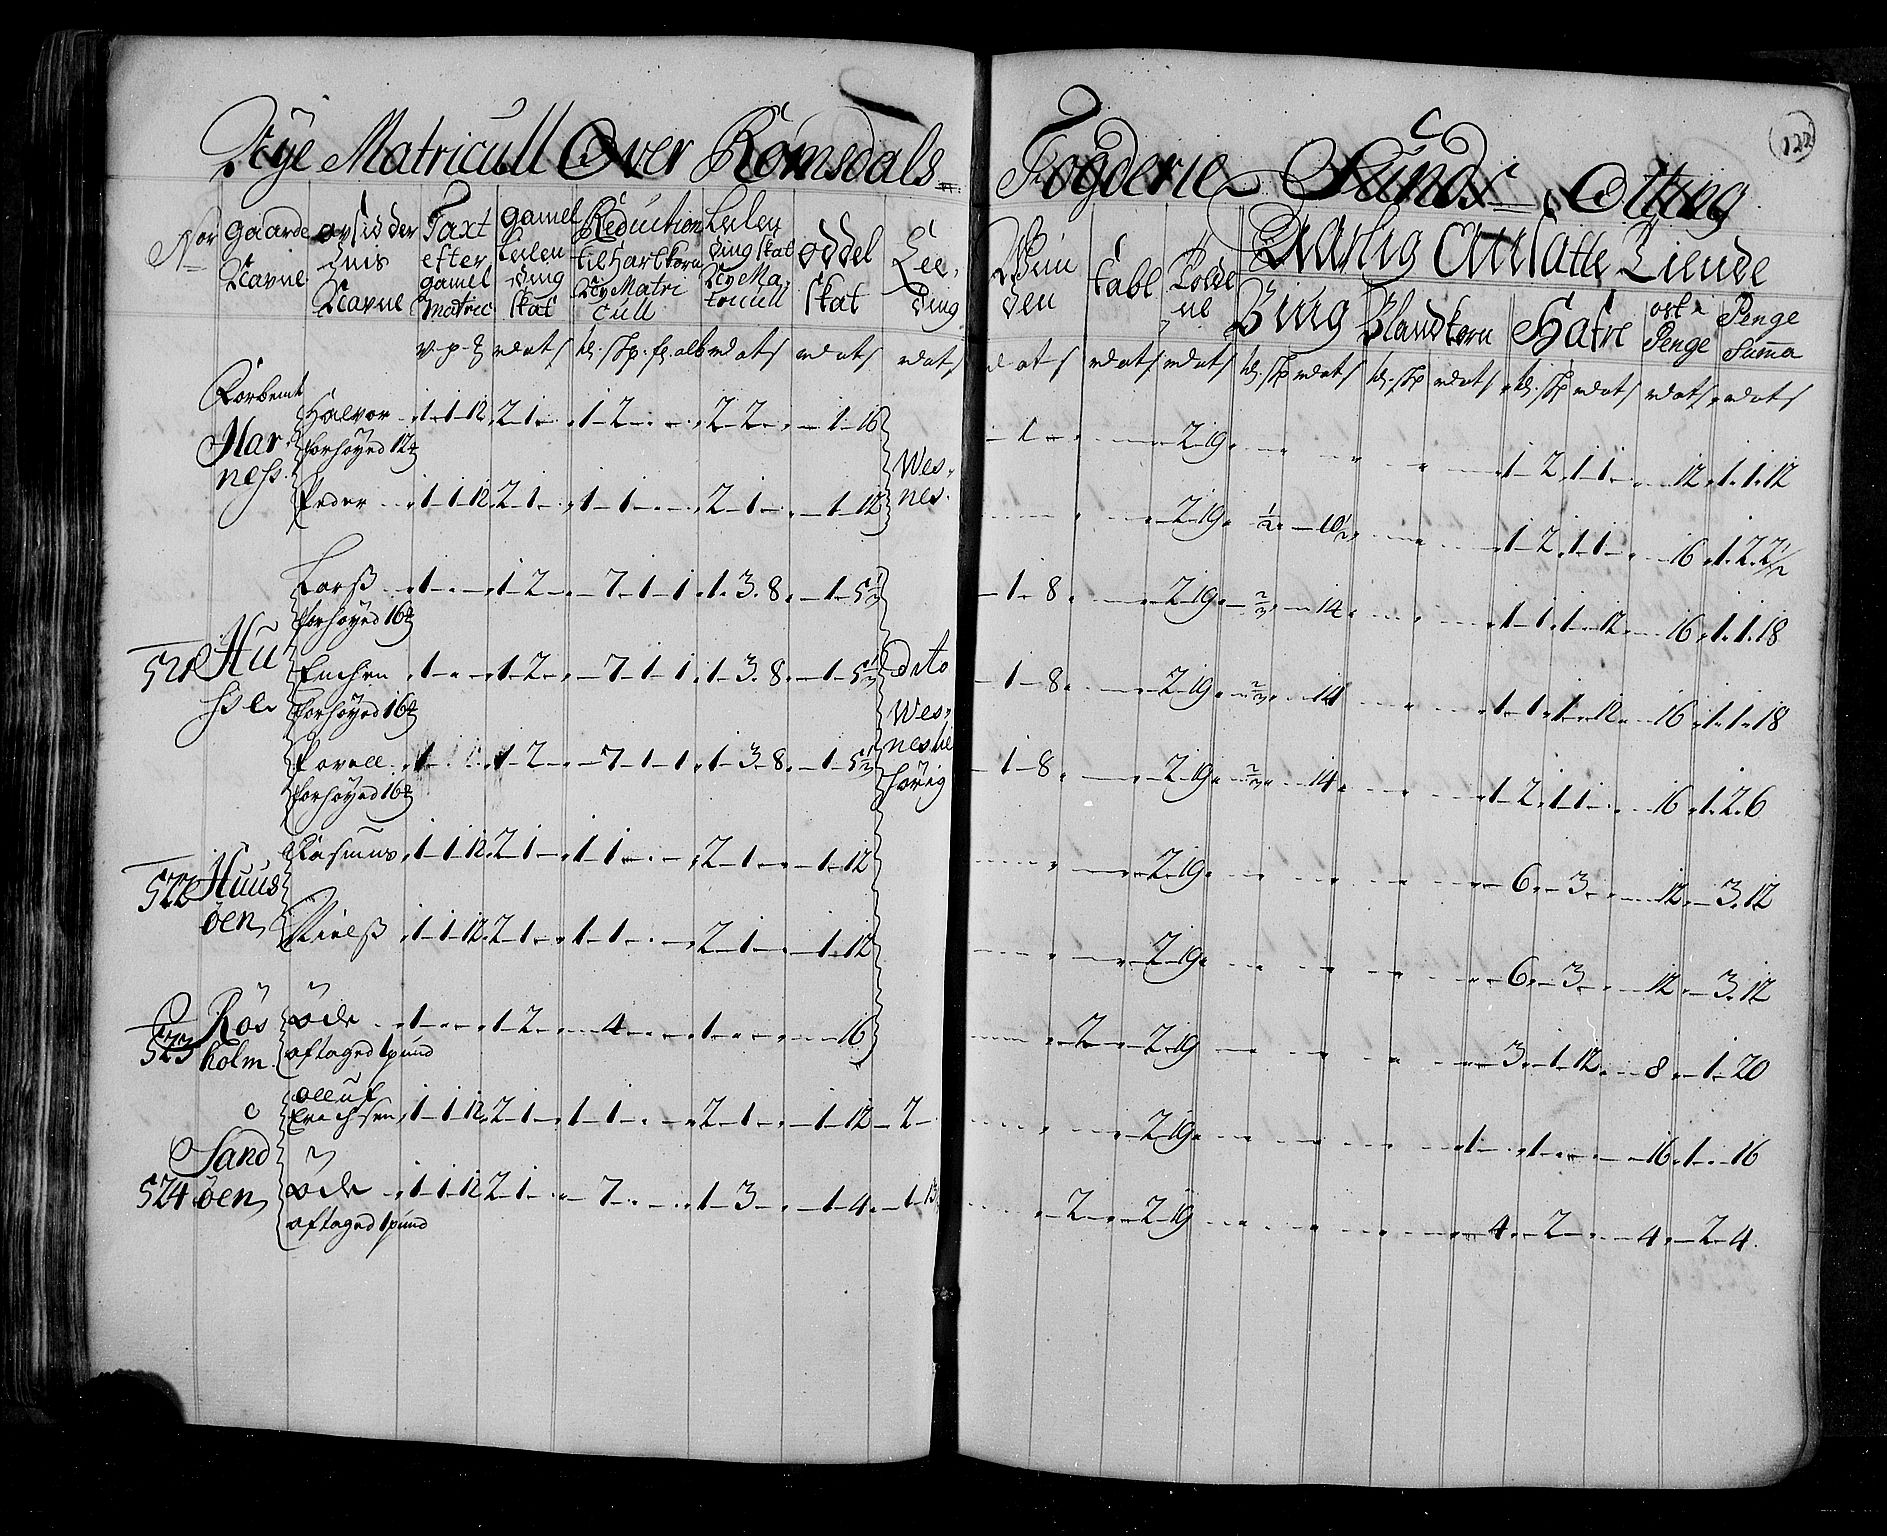 Nye Matricull Over Romsdals
Nor gaarde Navne opsidder nis Navne Taxt efter gamel Matric gamel Leilen ding skat Reduction til Hartkorn Ny Matri cull Leilen ding skat Ny Ma tricull oddel skat Lee ding
Korbemt
Har ness. Halvor 1-1-12 2-1 1-2 2-2 1-16
forhøyed 12
Peder 1-1-12 2-1 1-1 2-1 1-12 Wes nes
Larß 1 1-2 7-1-1 1-3-8 1-5½
forhøyed 16
521 Hu sse Enchen 1 1-2 7-1-1 1-3-8 1-5½ dito
forhøyed 16 Wes
Povell 1 1-2 7-1-1 1-3-8 1-5½ nes be
forhøyed 16 hørig
522 Huus øen Rasmus 1-1-12 2-1 1-1 2-1 1-12
Nielß 1-1-12 2-1 1-1 2-1 1-12
523 Røs holm øde 1 1-2 4 1 16
aftaged 1 pund
olluf
Erichsen 1-1-12 2-1 1-1 2-1 1-12 2
524 Sand øen øde 1-1-12 2-1 7 1-3 1-4 1-13
aftaged 1 pund
122
Fogderie Sunds Otting
Aarlig Ansatte Tiende
Win den tabl Rolde ne Bÿug Blandkorn Hafre ost Penge Penge Summa
1 2-19 1-2 1-1 12 1-1-12
2-19 ½ 10½ 1-2 1-1 16 1-2-2½
1-8 2-19 ⅔ 14 1-1 1-12 16 1-1-18
1-8 2-19 ⅔ 14 1-1 1-12 16 1-1-18
1-8 2-19 ⅔ 14 1-2 1-1 16 1-2-6
2-19 6 3 12 3-12
2-19 6 3 12 3-12
2 2-19 3 1-12 8 1-20
2-19 1 1 16 1-16
2 2-19 4 2 4 2-4